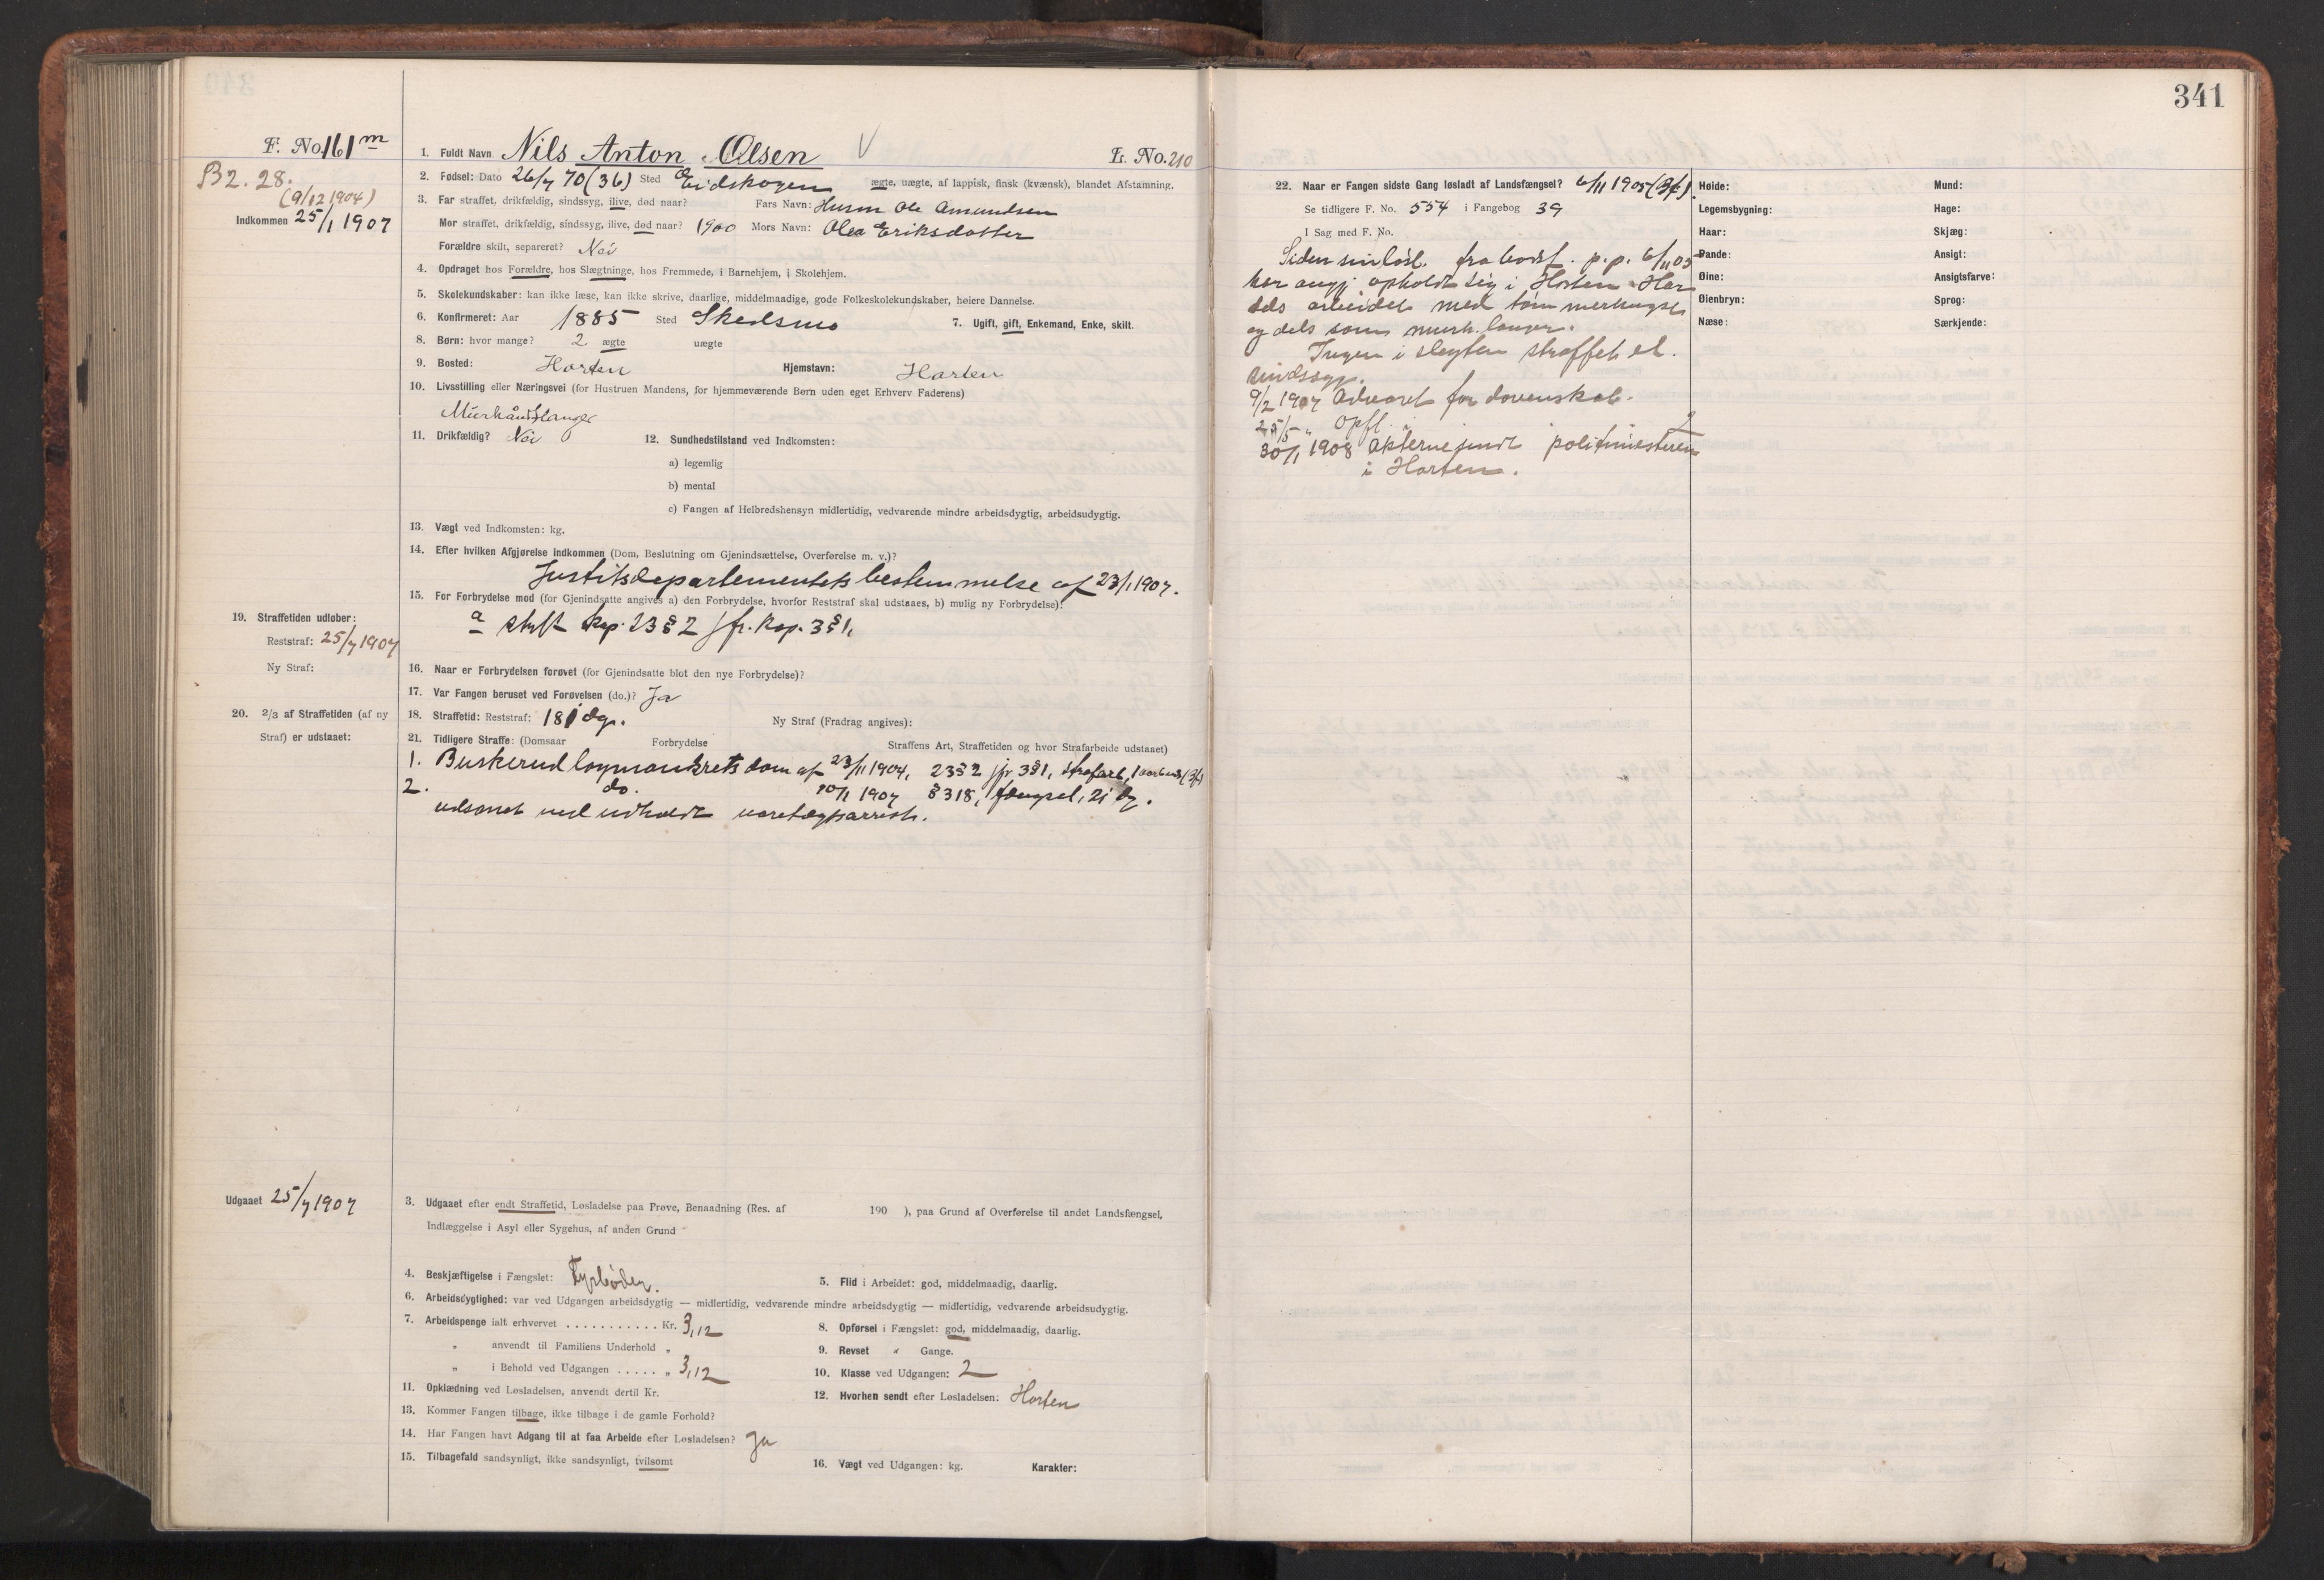 341
F. No. 161 m
B2. 28.
(9/12 1904)
Indkommen 25/1 1907
1. Fuldt Navn Nils Anton Olsen V L. No. 210
2. Fødsel: Dato 26/7 70 (36) Sted Eidskogen ægte, uægte, af lappisk, finsk (kvænsk), blandet Afstamning.
3. Far straffet, drikfældig, sindssyg, ilive, død naar? Fars Navn: Husm Ole Amundsen
Mor straffet, drikfældig, sindssyg, ilive, død naar? 1900 Mors Navn: Olea Eriksdatter
Forældre skilt, separeret? Nei
4. Opdraget hos Forældre, hos Slægtninge, hos Fremmede, i Barnehjem, i Skolehjem.
5. Skolekundskaber: kan ikke læse, kan ikke skrive, daarlige, middelmaadige, gode Folkeskolekundskaber, høiere Dannelse.
6. Konfirmeret: Aar 1885 Sted Skedsmo 7. Ugift, gift, Enkemand, Enke, skilt.
8. Børn: hvor mange? 2 ægte uægte
9. Bosted: Horten Hjemstavn: Horten
10. Livsstilling eller Næringsvei (for Hustruen Mandens, for hjemmeværende Børn uden eget Erhverv Faderens)
Murhåndslanger
11. Drikfældig? Nei 12. Sundhedstilstand ved Indkomsten:
a) legemlig
b) mental
c) Fangen af Helbredshensyn midlertidig, vedvarende mindre arbeidsdygtig, arbeidsudygtig.
13. Vægt ved Indkomsten: kg.
14. Efter hvilken Afgjørelse indkommen (Dom, Beslutning om Gjenindsættelse, Overførelse m. v.)?
Justitsdepartementets bestemmelse af 23/1 1907.
15. For Forbrydelse mod (for Gjenindsatte angives a) den Forbrydelse, hvorfor Reststraf skal udstaaes, b) mulig ny Forbrydelse)?
a strfl. kap. 23 § 2 jfr. kap. 3 § 1,
19. Straffetiden udløber:
Reststraf: 25/7 1907
Ny Straf:
16. Naar er Forbrydelsen forøvet (for Gjenindsatte blot den nye Forbrydelse)?
17. Var Fangen beruset ved Forøvelsen (do.)? Ja
20. 2/3 af Straffetiden (af ny
Straf) er udstaaet:
18. Straffetid: Reststraf: 181 dg. Ny Straf (Fradrag angives):
21. Tidligere Straffe: (Domsaar Forbrydelse Straffens Art, Straffetiden og hvor Strafarbeide udstaaet)
1. Buskerud lagmandsrets dom af 23/11 1904, 23 § 2 jfr 3 § 1, strafarb, 1
2. do. 10/1 1907 § 318, fængsel, 21 dg.
udsonet ved udholdt varetægtsarrest.
Udgaaet 25/7 1907
3. Udgaaet efter endt Straffetid, Løsladelse paa Prøve, Benaadning (Res. af 190 ), paa Grund af Overførelse til andet Landsfængsel,
Indlæggelse i Asyl eller Sygehus, af anden Grund
4. Beskjæftigelse i Fængslet: Fyrbøder. 5. Flid i Arbeidet: god, middelmaadig, daarlig.
6. Arbeidsdygtighed: var ved Udgangen arbeidsdygtig — midlertidig, vedvarende mindre arbeidsdygtig — midlertidig, vedvarende arbeidsudygtig.
7. Arbeidspenge ialt erhvervet ........... Kr. 3,12 8. Opførsel i Fængslet: god, middelmaadig, daarlig.
" anvendt til Familiens Underhold " 9. Revset " Gange.
" i Behold ved Udgangen ..... " 3,12 10. Klasse ved Udgangen: 2
11. Opklædning ved Løsladelsen, anvendt dertil Kr. 12. Hvorhen sendt efter Løsladelsen: Horten
13. Kommer Fangen tilbage, ikke tilbage i de gamle Forhold?
14. Har Fangen havt Adgang til at faa Arbeide efter Løsladelsen? Ja
15. Tilbagefald sandsynligt, ikke sandsynligt, tvilsomt 16. Vægt ved Udgangen: kg. Karakter:
22. Naar er Fangen sidste Gang løsladt af Landsfængsel? 6/11 1905
Se tidligere F. No. 554 i Fangebog 39
I Sag med F. No.
Siden sin løsl. fra bodsf. p.p. 6/11 05
har angj opholdt sig i Horten. Har
dels arbeidet med tømmerhugst
og dels som murh.langer.
Ingen i slegten straffet el.
sindssyge.
9/2 1907 Advaret for dovenskab.
25/5 " Opfl. i 2
30/1 1908 Akterne sendt politimesteren
i Horten.
Høide: Mund:
Legemsbygning: Hage:
Haar: Skjæg:
Pande: Ansigt:
Øine: Ansigtsfarve:
Øienbryn: Sprog:
Næse: Særkjende: